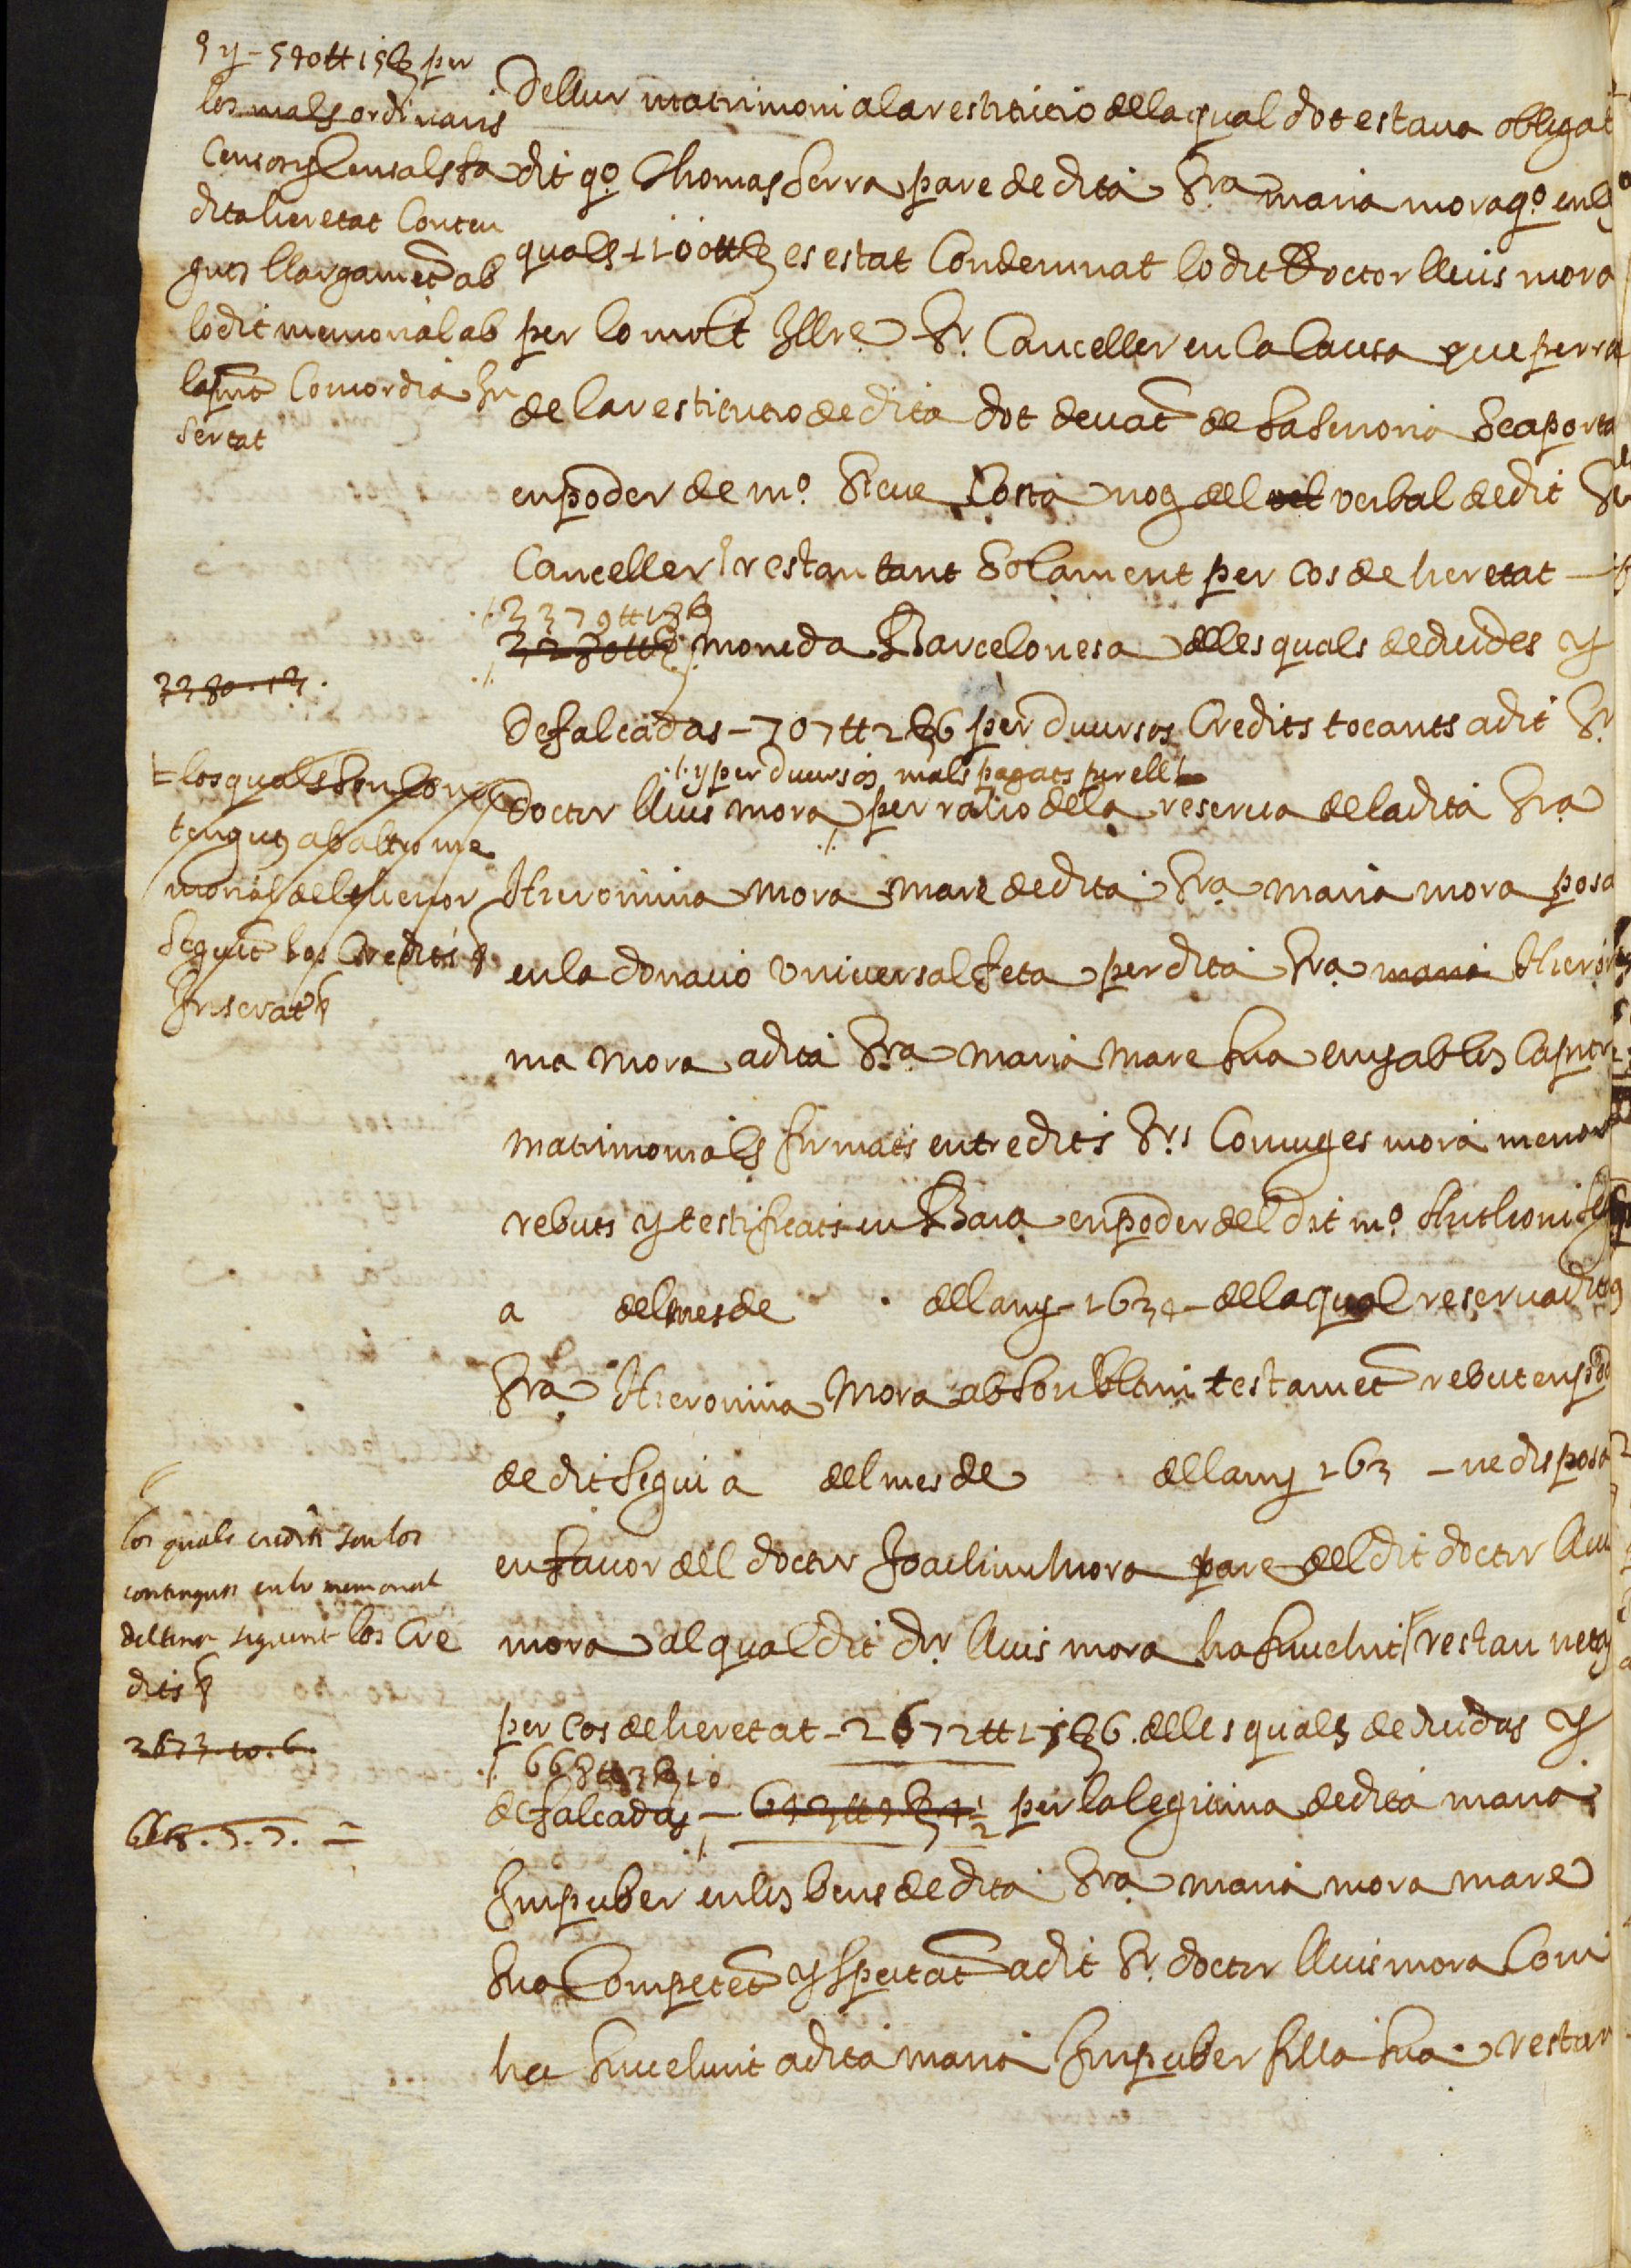 y - 540tt 15ß per
los mals ordinaris
Censos y Censals fa
dita heretat Contin
guts llargamet ab
lo dit memorial ab
la pnt Concordia In
sertat
de llur matrimoni a la restitutio de la qual dot estava obligat
dit qº. Thomas Serra pare de dita Sra. maria mora qº. en les
quals 1100tt ß es estat Condemnat lo dit Doctor lluis mora
per lo molt Illre. Sr. Canceller en la Causa que per ra
de la restitutio de dita dot devat de sa Senoria Se aporta
en poder de mº. Steve Costa not del vel verbal de dit Sr
Canceller restan tant Solament per Cos de heretat —
3379tt 13ß
3280tt ß moneda Barcelonesa de les quals deduides y
3380.13.
Defalcadas - 707tt 2ß6 per diversos Credits tocants a dit Sr
./. y per diversos mals pagats per ell
los quals son con
tenguts ab altro me
morial del thenor
Seguet los Credits &
Inserat &
doctor lluis mora per ratio de la reserva de la dita Sra
Hieronima mora mare de dita Sra maria mora posa
en la donacio Universal feta per dita Sra. maria Hieroni
ma mora a dita Sra maria mare sua en y ab los Capitols
matrimonials firmats entre dits Srs Coniuges mora menor
rebuts y testificats en Bara en poder del dit mº. Anthoni
a del mes de . del any - 1634 - de la qual reserva dita
Sra Hieronima Mora ab son ultim testamet rebut en poder
de dit Segui a del mes de del any 163 - ne disposa
en favor del doctor Joachim Mora pare del dit doctor lluis
mora al qual dit dr. lluis mora ha succehit restan nets
los quals credits son los
continguts en lo memorial
del tenor seguent los Cre
dits &
2673.10.6.
per Cos de heretat - 2672tt 1ß6. de les quals deduidas y
./. 668tt 3ß10
defalcadas - 643tt ß 4 1/2 per la legitima de dita maria
668.7.7.
Impuber en los bens de dita Sra maria mora mare
Sua Competet y Spectat a dit Sr. doctor lluis mora Com
ha Succehit a dita maria Impuber filla sua. restan